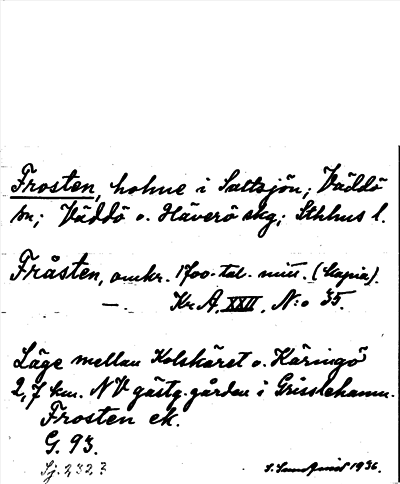 Frosten, holme i Saltsjön; Väddö
sn; Väddö o. Häverö skg; Sthlms l.
Fråsten, omkr. 1700-tal. mitt. (kopia).
—. Kr. A. XXII, N:o 35.
Läge mellan Kolskäret o. Käringö
2,7 km. NV gästg.gården i Grisslehamn.
Frosten ek.
G. 93.
Sj. 232?
1936.